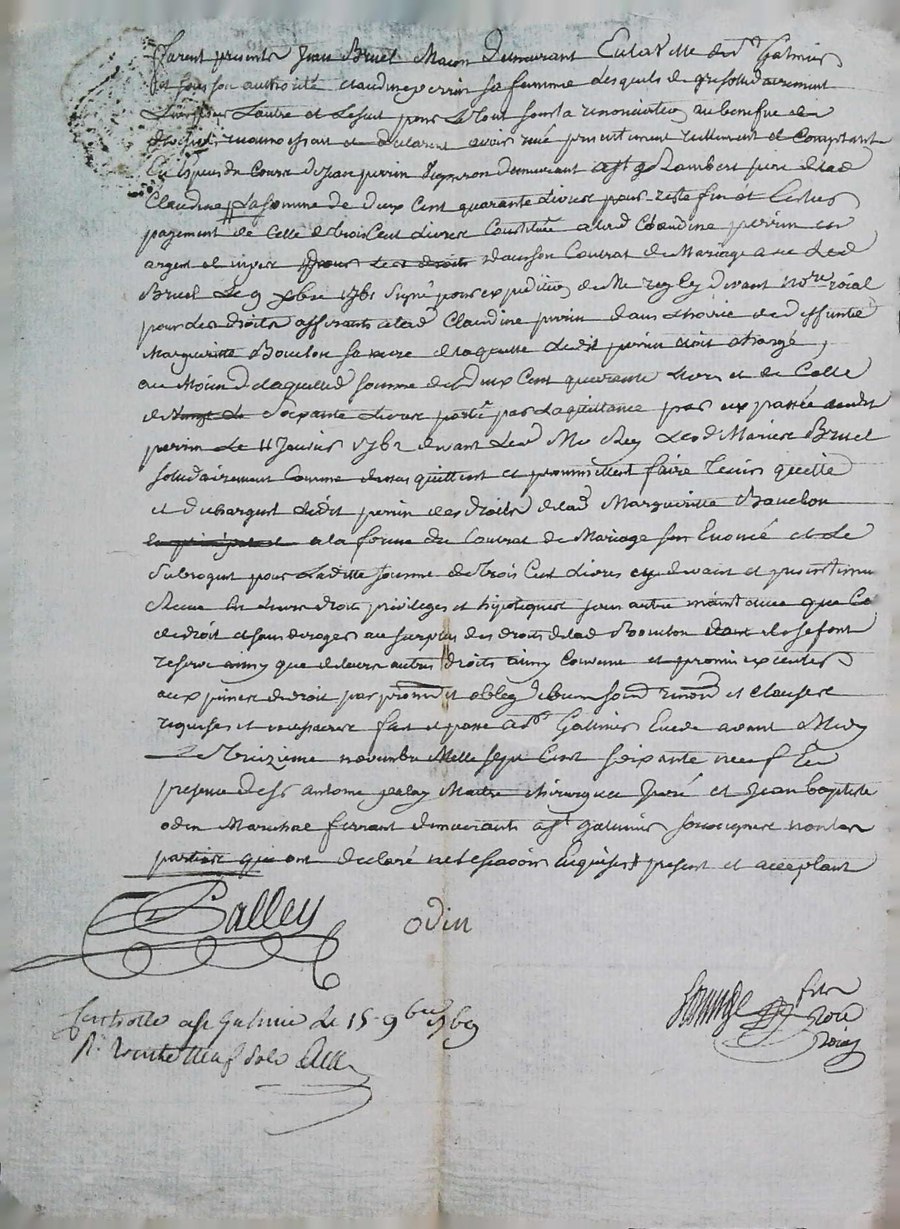 furent presents Jean Bruel Macon demeurant en la ville de st Galmier
et sous son authorité claudine perrin sa femme lesquels de gré solidairement
l'un pour l'autre et le seul pour le tout sous la renonciation au benefice de
droit reconnoissent et declarent avoir reçu presentement reellement et comptant
en especes de cours de Jean perrin vigneron demeurant a st Lambert pere de lad
Claudine la somme de deux cent quarante livres pour reste fin et entier
payement de celle de trois cent livres constituée a lad Claudine perrin en
argent dans son contrat de Mariage avec led
Bruel le 9 xbre 1761 signé pour expedition de Me rey devant nore roial
pour les droits afferants a lad Claudine perrin dans l'hoirie de deffunte
Margueritte Bouchon sa mere de laquelle ledit perrin étoit chargé,
au moien de laquelle somme de deux cent quarante livres et de celle
de soixante livres porté par la quittance par eux passée audit
perrin le 11 Janvier 1762 devant led Me Rey led Mariés Bruel
solidairement comme dessus quittent et promettent faire tenir quitte
et dechargent ledit perrin des droits de lad Margueritte Bouchon
a la forme du contrat de Mariage sus enoncé et le
subrogent pour laditte somme de trois cent livres cy devant et presentement
Reçue en leurs droits privileges et hipoteques sans autre maintenue que de
droit et sans deroger au surplus des droits de lad Bouchon dont ils se font
reserve ainsy que de leurs autres droits ainsy convenu et promis executer
aux peines de droit par proms oblig soum renon et clauses
requises et necessaires fait et passé a st Galmier Etude avant Midy
le treizieme novembre Mille sept cent soixante neuf en
presence de sr antoine Maitre chirurgien Juré et Jean baptiste
odin Marechal ferrant demeurants a st galmier soussignés non les
parties qui ont declaré ne le scavoir Enquises present et acceptant
Balley
odin
nore
roial
Controllé a st Galmier le 15 9bre 1769
R. trente neuf sols